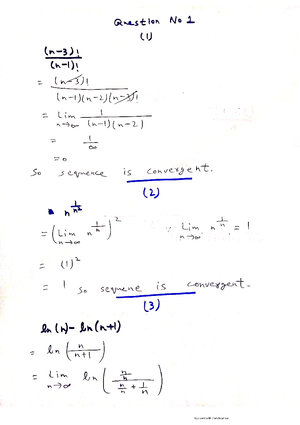 Question No 1
(1)
(n-3)!
(n-1)!
= (n-3)!
(n-1)(n-2)(n-3)!
= Lim n→∞ 1
(n-1)(n-2)
= 1
∞
= 0
So sequence is convergent.
(2)
n^{1/n^2}
= (Lim n→∞ n^{1/n})^2 ∵ Lim n→∞ n^{1/n} = 1
= (1)^2
= 1 So sequene is convergent.
(3)
ln(n) - ln(n+1)
= ln (n/(n+1))
= Lim n→∞ ln ((n/n)/(n/n + 1/n))